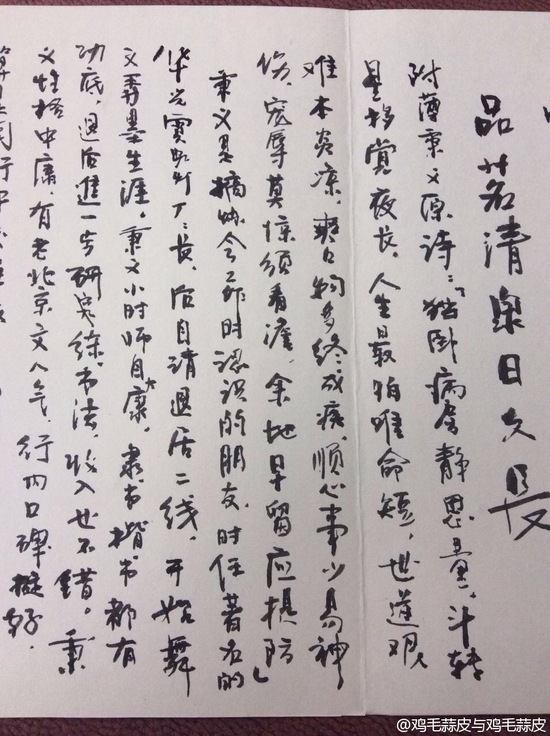 品茗清泉日久長
附薄秉文原诗:“独卧病房静思量,斗转
星移赏夜长,人生最怕唯命短,世道艰
难本炎凉。爽口物多终成疾,顺心事少易神
伤。宠辱莫惊须看淡,余地早留应提防”
秉文是搞 工作时认识的朋友,时任著名的
华光 厂厂长,后自请退居二线,开始舞
文弄墨生涯。秉文小时师自大康,隶书楷书都有
功底,退后进一步研究练书法,收入也不错。秉
文性格中庸,有老北京文人气,行内口碑挺好。
@鸡毛蒜皮与鸡毛蒜皮